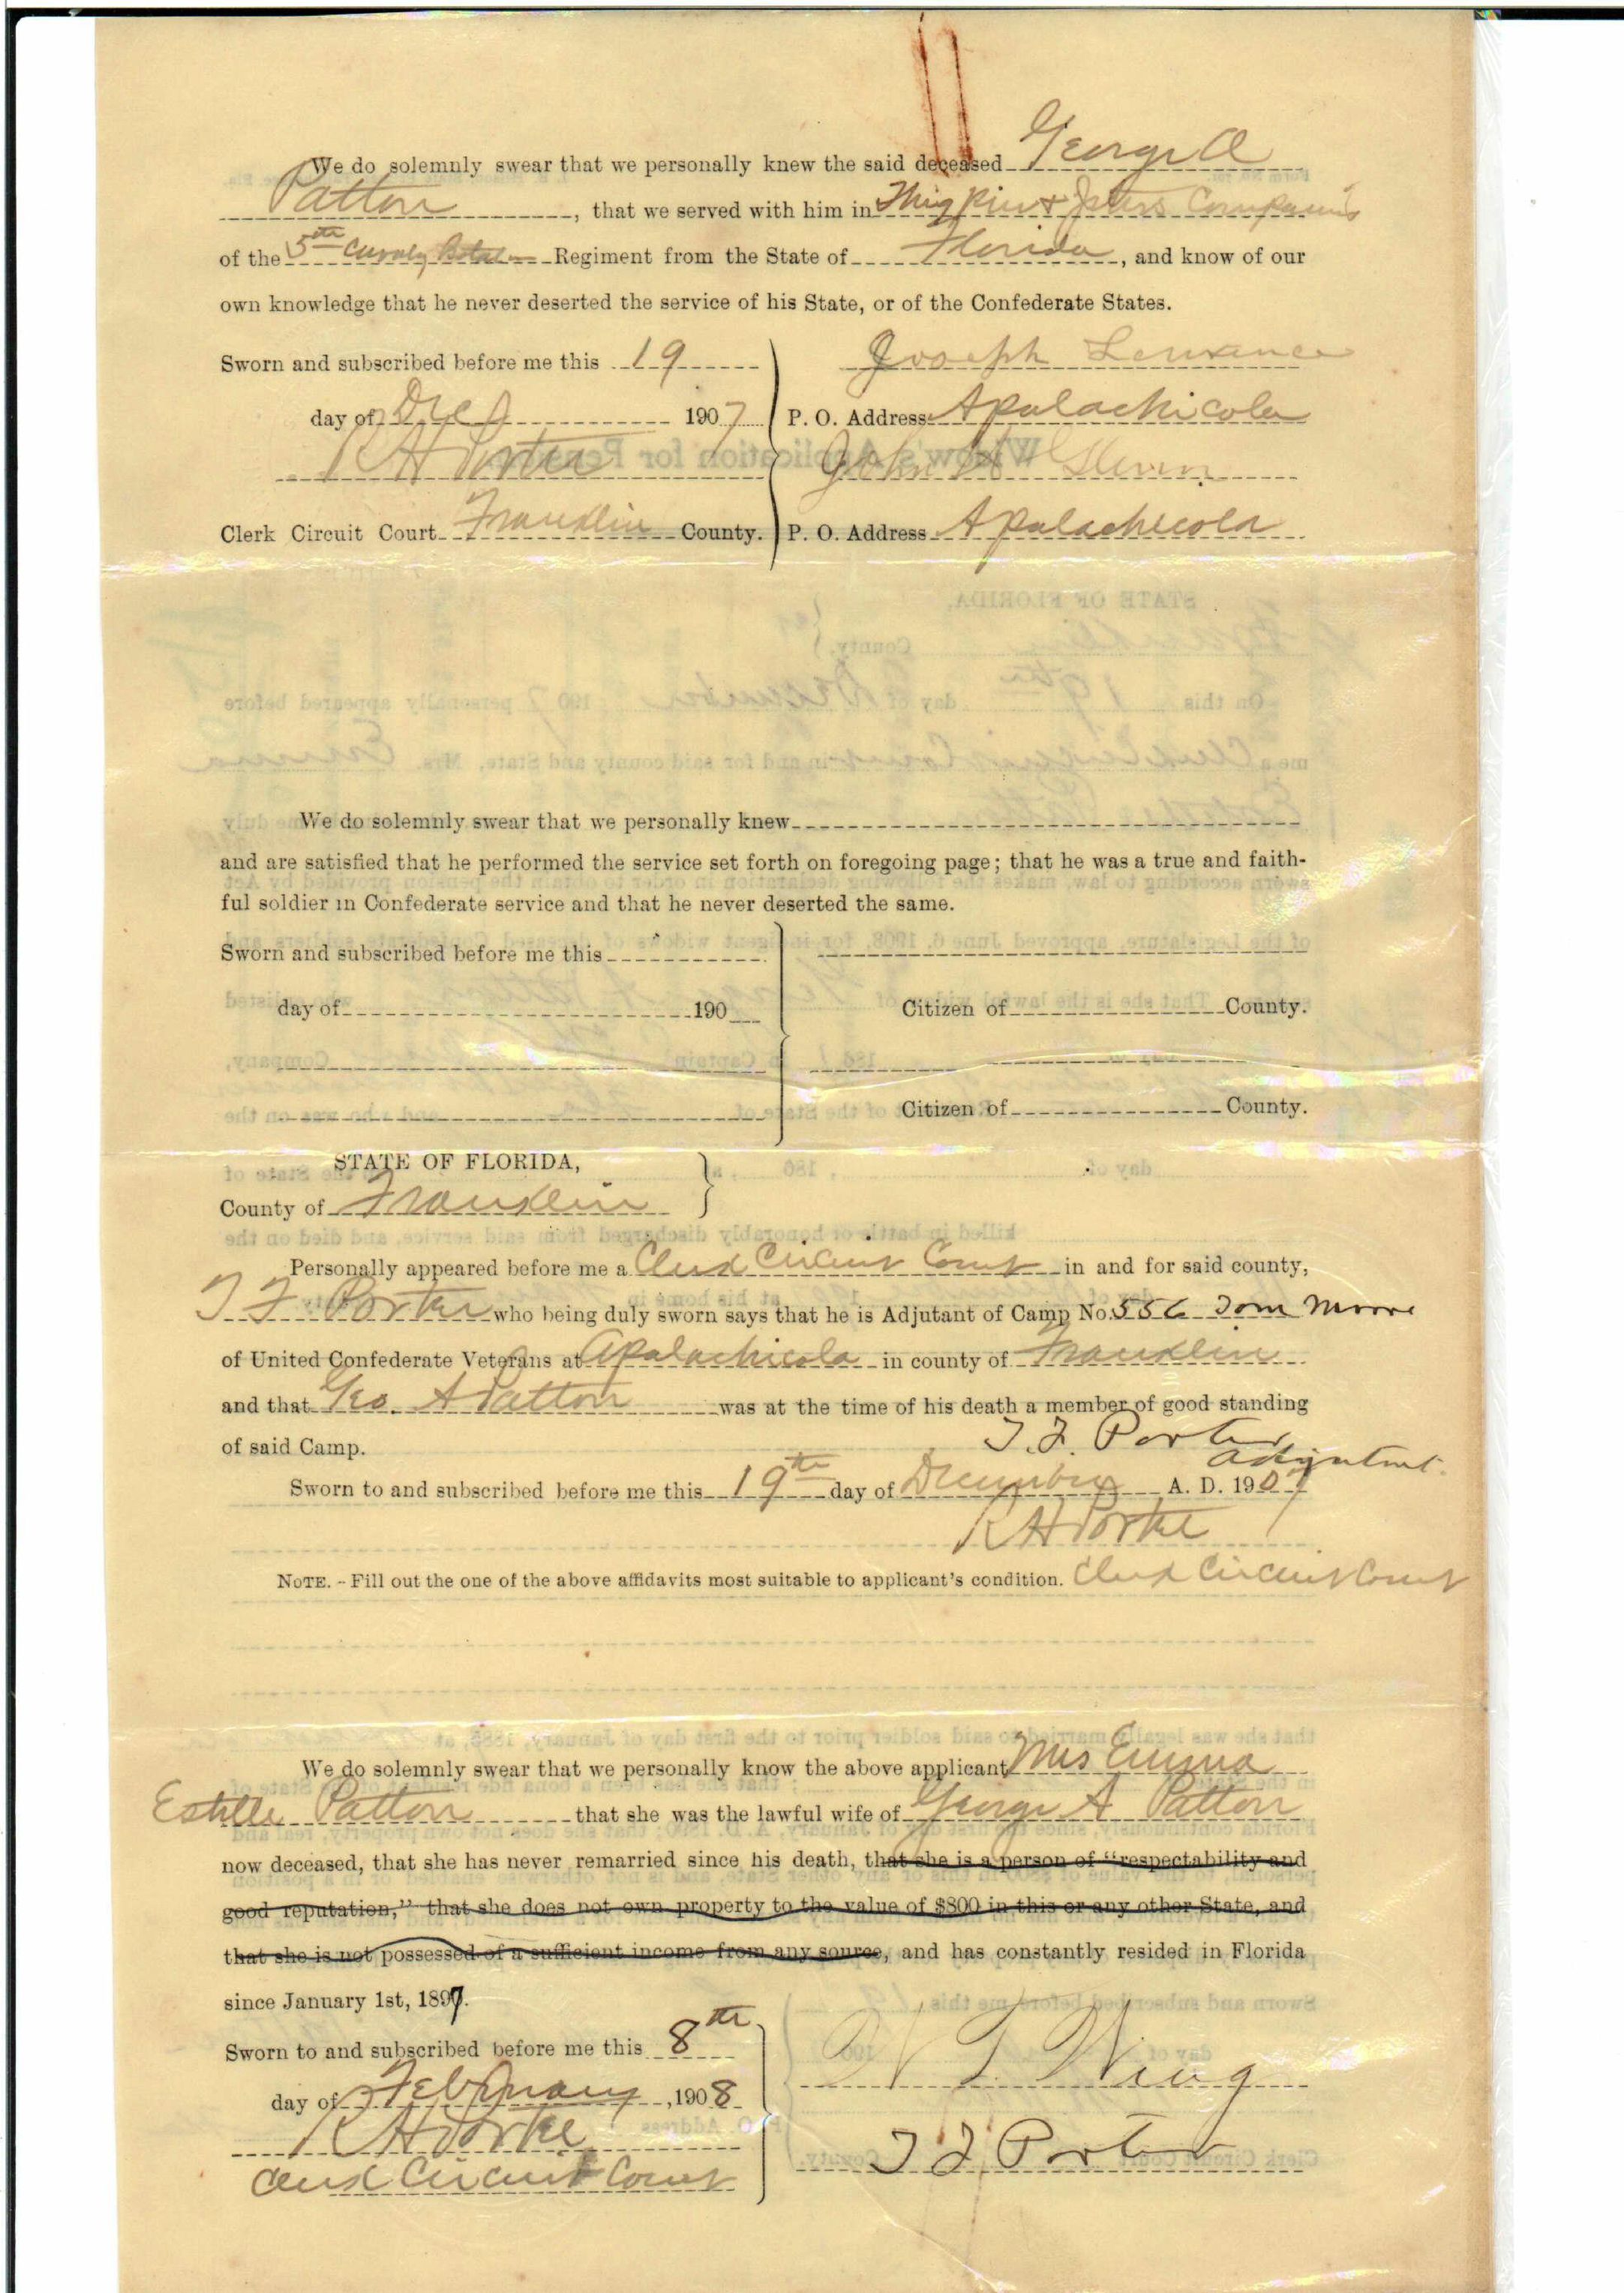 We do solemnly swear that we personally knew the said deceased George A
Patton, that we served with him in & Companies
of the 5th Cavalry Regiment from the State of Florida, and know of our
own knowledge that he never deserted the service of his State, or of the Confederate States.
Sworn and subscribed before me this 19
Joseph Lawrence
day of Dec 1907
P. O. Address Apalachicola
R H Porter
John
Clerk Circuit Court Franklin County.
P. O. Address Apalachicola
We do solemnly swear that we personally knew
and are satisfied that he performed the service set forth on foregoing page; that he was a true and faith-
ful soldier in Confederate service and that he never deserted the same.
Sworn and subscribed before me this
day of 190
Citizen of County.
Citizen of County.
STATE OF FLORIDA,
County of Franklin
Personally appeared before me a Clerk Circuit Court in and for said county,
T F Porter who being duly sworn says that he is Adjutant of Camp No. 556 Tom Moore
of United Confederate Veterans at Apalachicola in county of Franklin
and that Geo. A Patton was at the time of his death a member of good standing
of said Camp.
T. F. Porter
Adjutant.
Sworn to and subscribed before me this 19th day of December A. D. 1907
R H Porter
NOTE. - Fill out the one of the above affidavits most suitable to applicant's condition. Clerk Circuit Court
We do solemnly swear that we personally know the above applicant Mrs Emma
Estelle Patton that she was the lawful wife of George A Patton
now deceased, that she has never remarried since his death, that she is a person of "respectability and
good reputation," that she does not own property to the value of $800 in this or any other State, and
that she is not possessed of a sufficient income from any source, and has constantly resided in Florida
since January 1st, 1897.
Sworn to and subscribed before me this 8th
day of February, 1908
Wing
R H Porter
T F Porter
Clerk Circuit Court